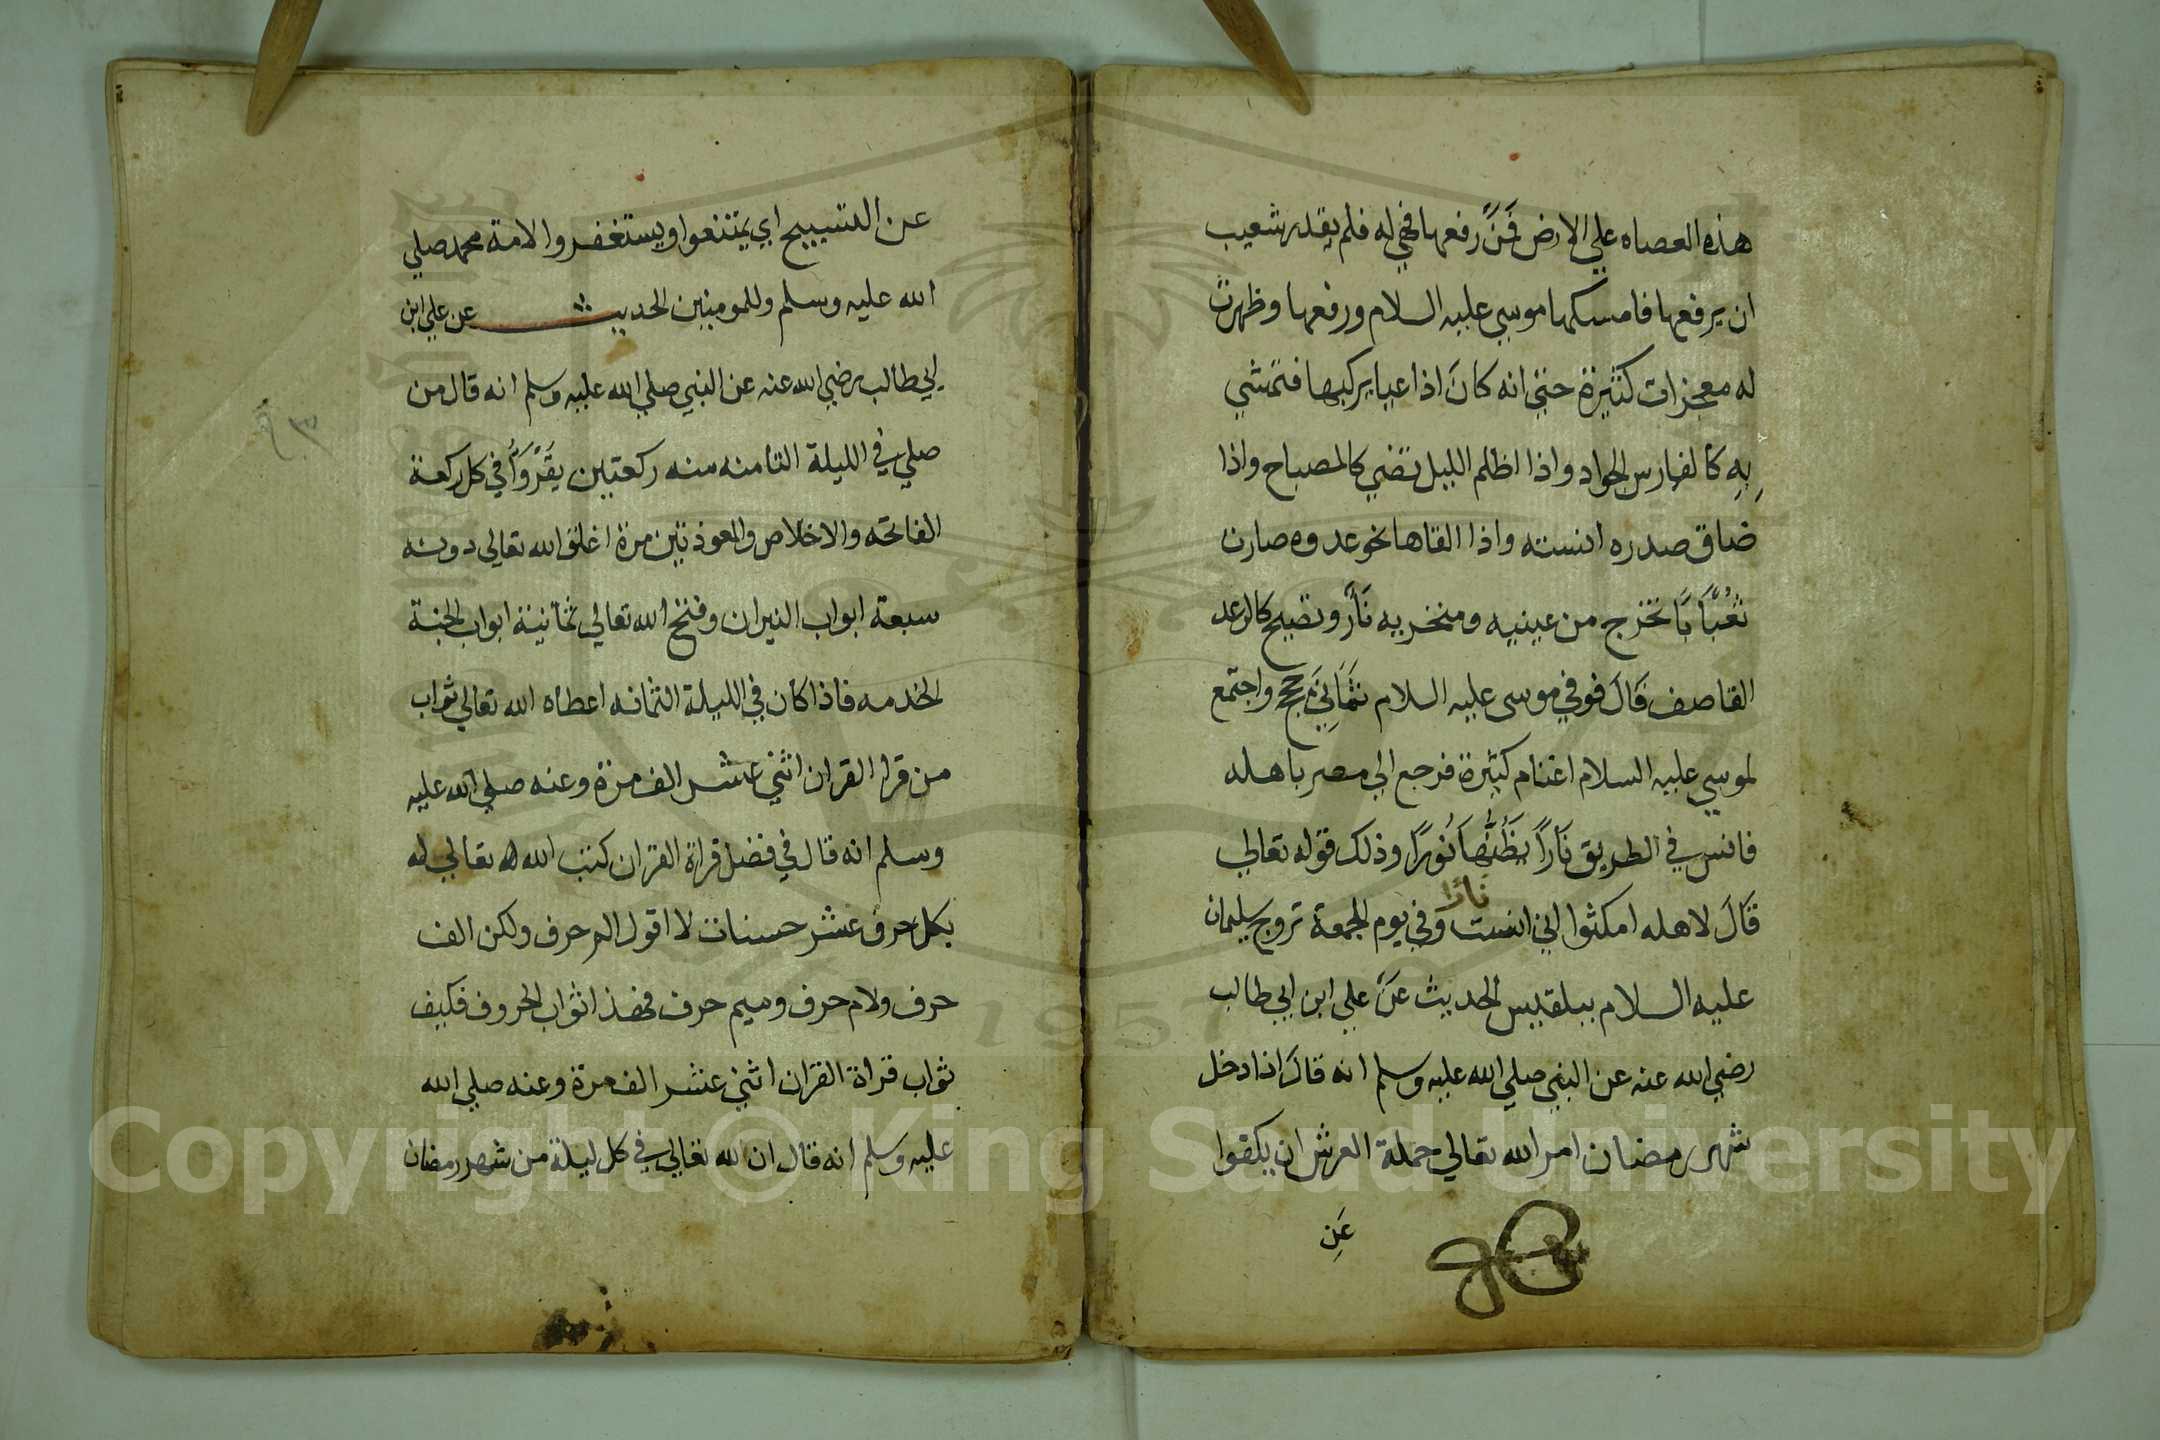 هذه العصاه علي الارض فمن رفعها فهي له فلم يقدر شعيب
ان يرفعها فامسكها موسي عليه السلام ورفعها وظهرت
له معجزات كثيرة حتي انه كان اذا عيا يركبها فتمشي
به كالفارس الجواد واذا اظلم الليل تضي كالمصباح واذا
ضاق صدره انسته واذا القاها نحو عدوه صارت
ثعبًا بًا تخرج من عينيه ومنخريه نار وتصيح كالرعد
القاصف قال فوفي موسى عليه السلام ثماني حجج واجتمع
لموسي عليه السلام اغنام كثيرة فرجع الي مصر باهله
فانس في الطريق نارًا يظنها نورًا وذلك قوله تعالي
قال لاهله امكثوا اني انست نارا وفي يوم الجمعة تزوج سليمان
عليه السلام ببلقيس الحديث عن علي ابن ابي طالب
رضي الله عنه عن النبي صلي الله عليه وسلم انه قال اذا دخل
شهر رمضان امر الله تعالي حملة العرش ان يكفوا
عن
عن التسبيح اي يمتنعوا ويستغفروا لامة محمد صلي
الله عليه وسلم وللمومنين الحديث عن علي ابن
ابي طالب رضي الله عنه عن النبي صلي الله عليه وسلم انه قال من
صلي في الليلة الثامنه منه ركعتين يقروا في كل ركعة
الفاتحه والاخلاص والمعوذتين مرة اغلق الله تعالي دونه
سبعة ابواب النيران وفتح الله تعالي ثمانية ابواب الجنة
الخدمه فاذا كان في الليلة الثمانه اعطاه الله تعالي ثواب
من قرا القران اثني عشر الف مرة وعنه صلي الله عليه
وسلم انه قال في فضل قراة القران كتب الله تعالي له
بكل حرف عشر حسنات لا اقول الم حرف ولكن الف
حرف ولام حرف وميم حرف فهذا ثواب الحروف فكيف
ثواب قراة القران اثني عشر الف مرة وعنه صلي الله
عليه وسلم انه قال ان لله تعالي في كل ليلة من شهر رمضان
1957
Copyright © King Saud University